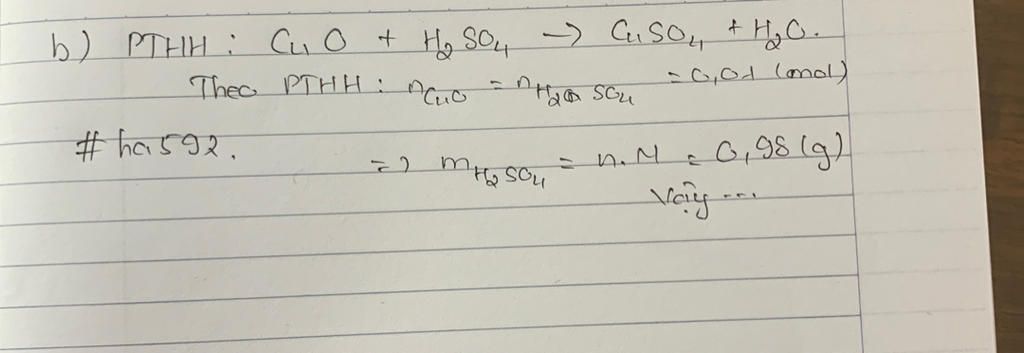 b) PTHH : CuO + H₂SO₄ → CuSO₄ + H₂O.
Theo PTHH : nCuO = nH₂SO₄ = 0,01 (mol)
#ha592.
=> mH₂SO₄ = n.M = 0,98 (g)
Vậy ...